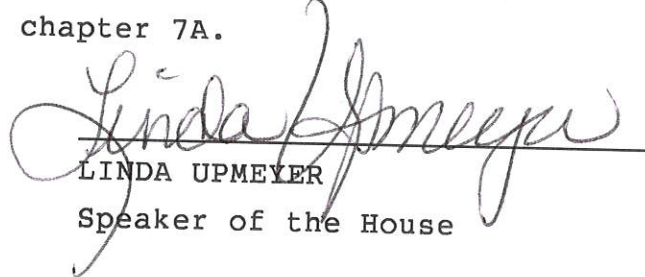 chapter 7A.
Linda Upmeyer
LINDA UPMEYER
Speaker of the House